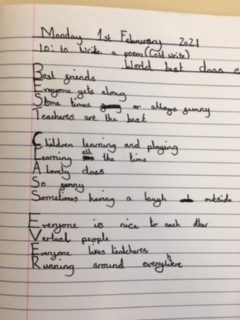 Monday 1st Februrary 2021
Lo: to write a poem (Cold write)
World best class e
Best griends
Everyone gets along
Some times or allways gunny
Teachures are the best
Children learning and playing
Learning all the time
A lovely class
So gunny
Sometimes having a laugh outside
Everyone is nice to each other
Verbual people
Everyone likes teatchures
Running around everywhere